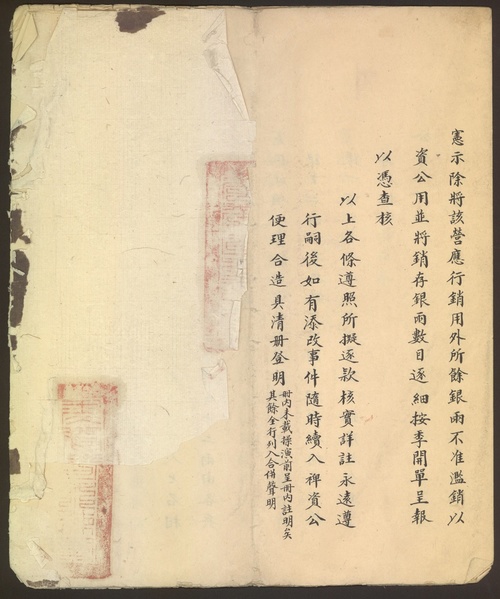 憲示除將該營應行銷用外所餘銀兩不准濫銷以
資公用並將銷存銀兩數目逐細按季開單呈報
以憑查核
以上各條遵照所擬逐款核實詳註永遠遵
行嗣後如有添改事件隨時續入裨資公
便理合造具清册登明
册内未載操演前呈册内註明矣
其餘全行列入合併聲明